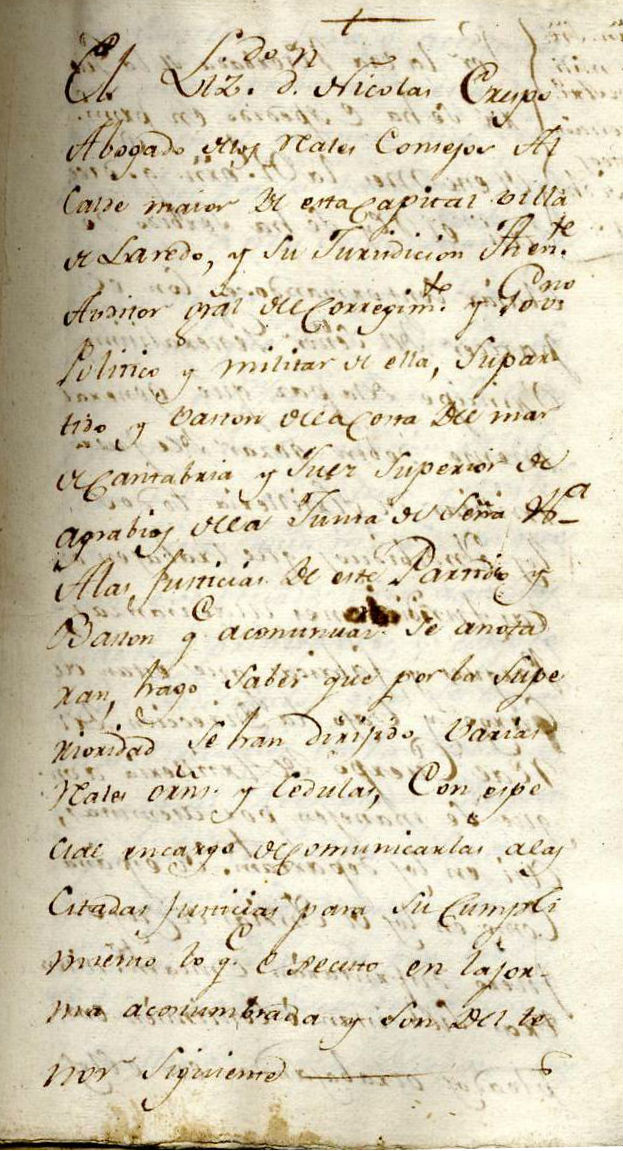 El Liz.do d.n Nicolas Crespo
Abogado de los Rales Consejos Al
Calde maior de esta Capital Villa
de Laredo, y su Jurisdicion Then.te
Auditor gral del Corregim.to y Gov.no
Politico y militar de ella, su par
tido y Baston de la Costa del mar
de Cantabria y Juez Superior de
agrabios de la Junta de Seña &.a
A las Justicias de este Partido y
Baston q.e a continuaz.n se anota
ran, hago saber que por la Supe
rioridad se han dirijido varias
Rales orns. y Cedulas, Con espe
cial encargo de comunicarlas a las
Citadas Justicias para su Cumpli
miento lo q.e executo en la for-
ma acostumbrada y son del te
nor siguiente